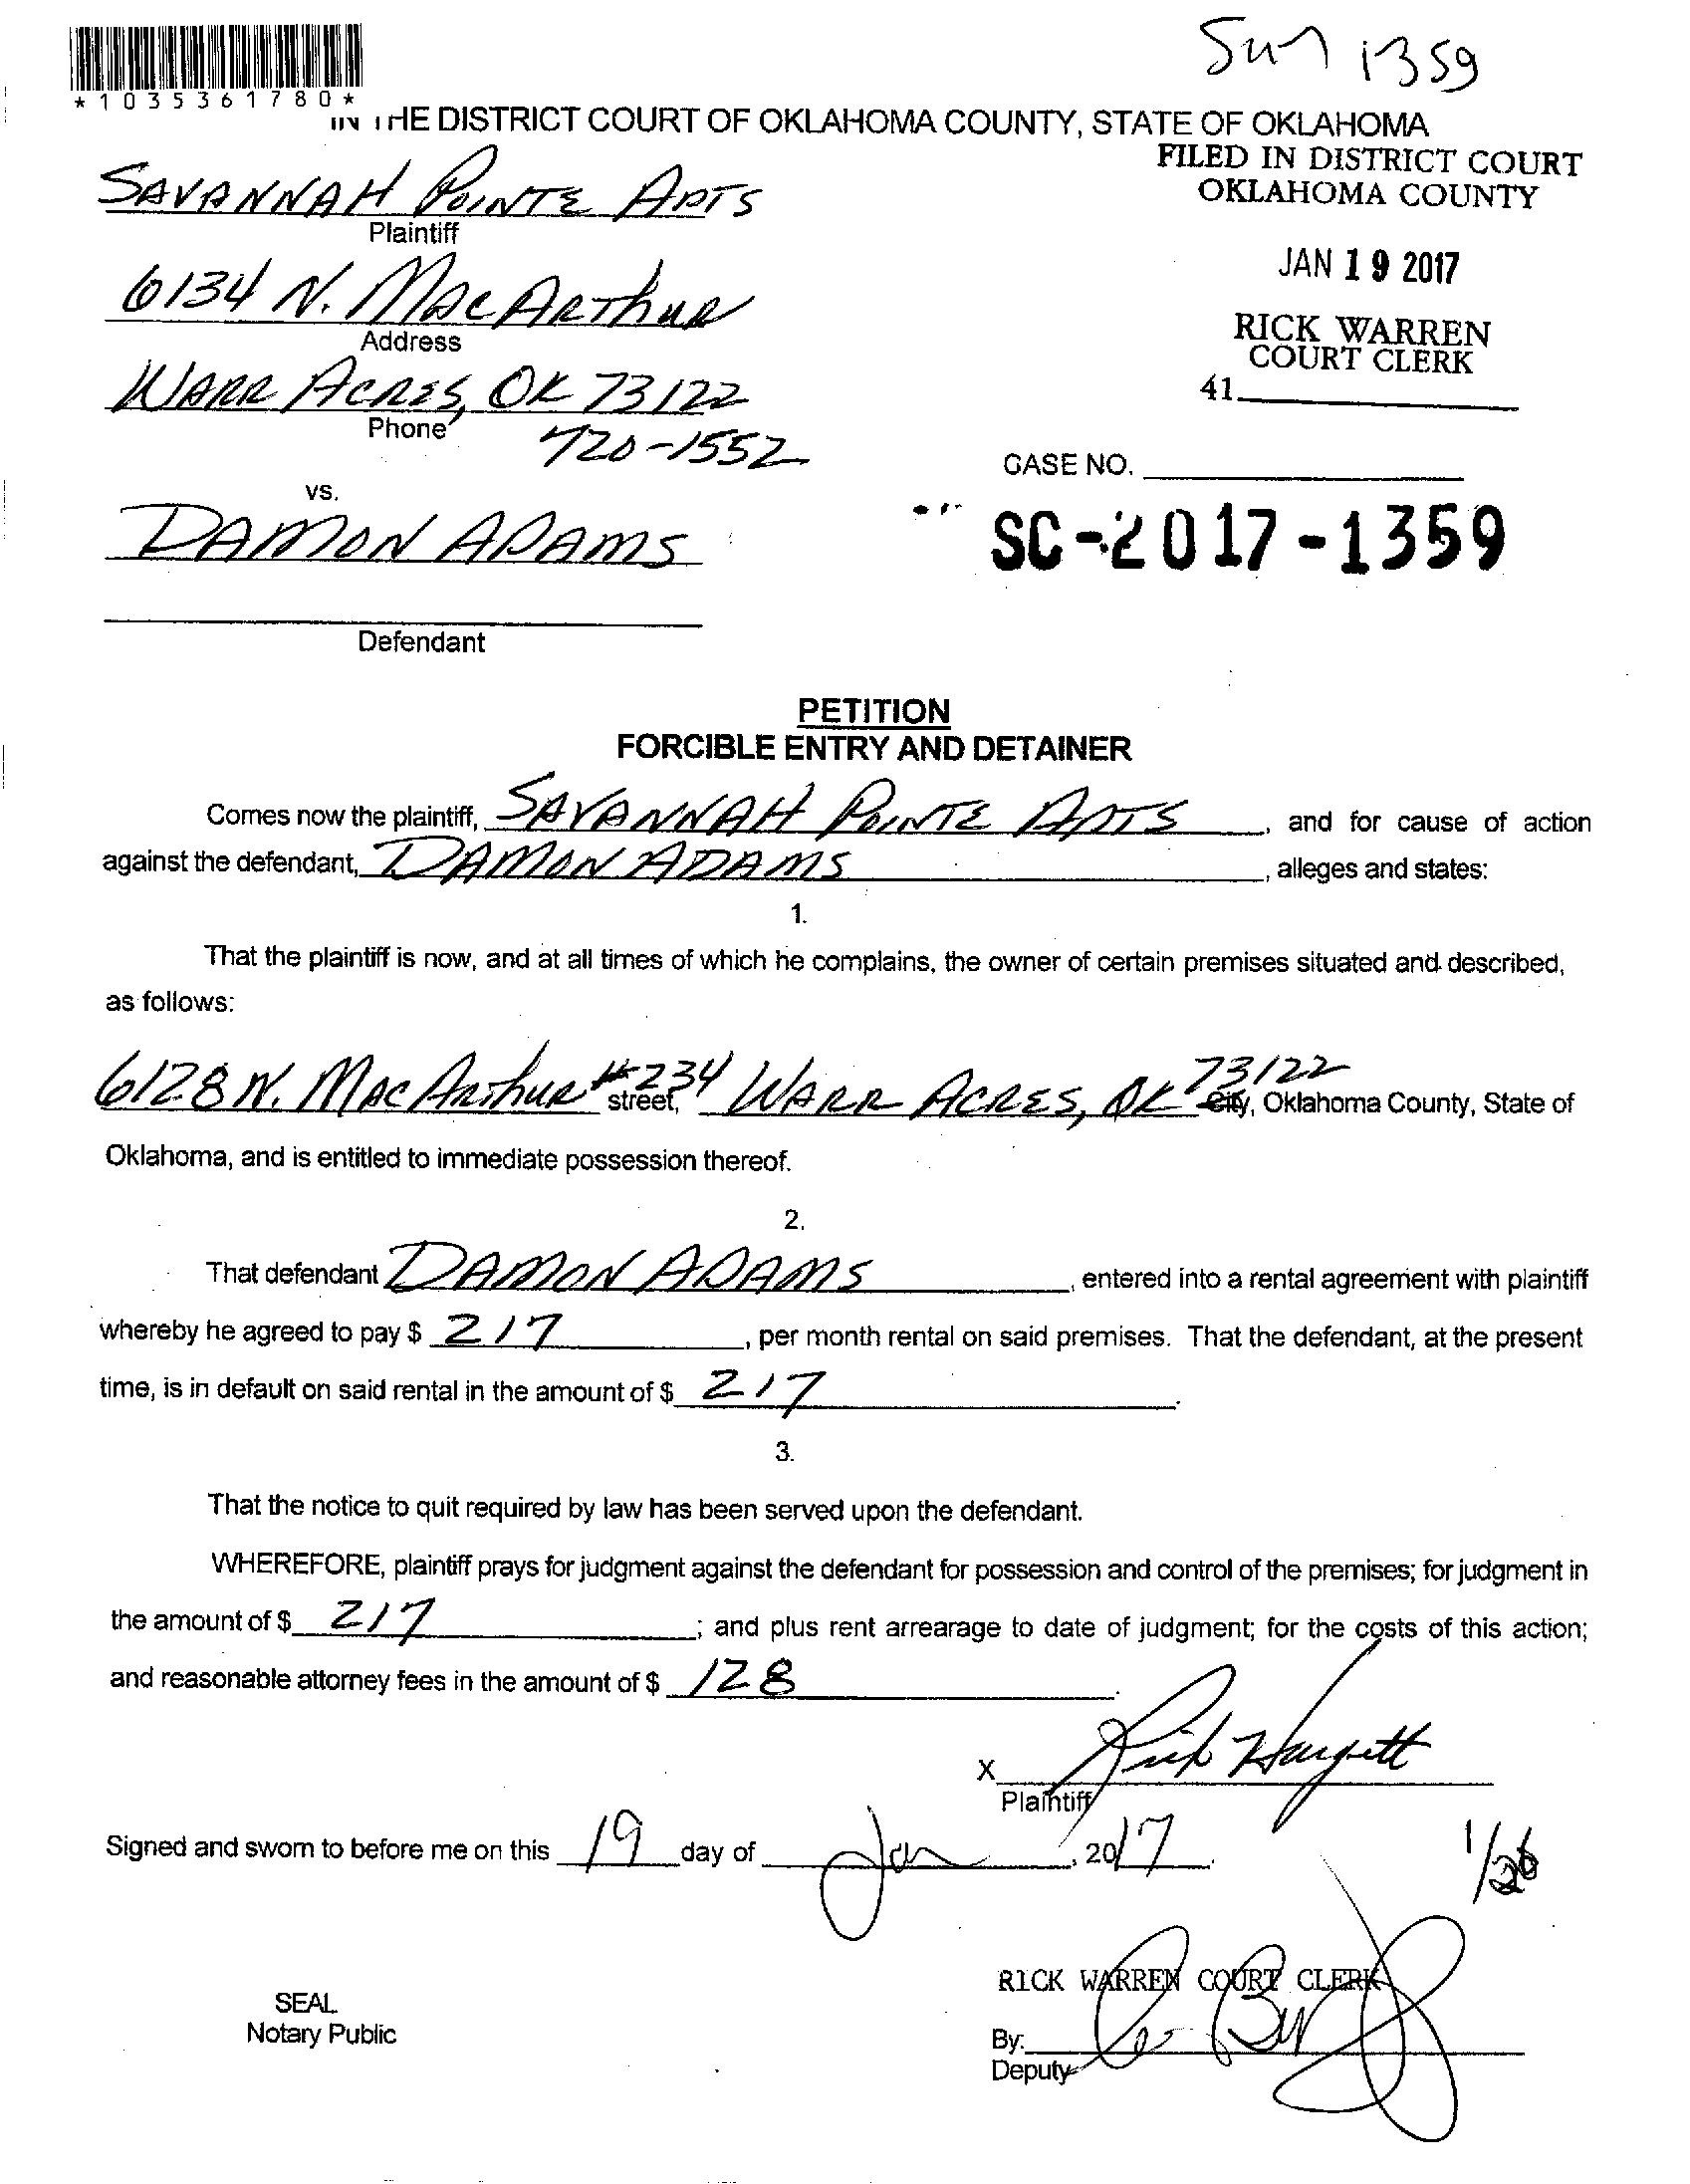 Sm 1359
*1035361780*
IN THE DISTRICT COURT OF OKLAHOMA COUNTY, STATE OF OKLAHOMA
FILED IN DISTRICT COURT
OKLAHOMA COUNTY
SAVANNAH POINTE APTS
Plaintiff
JAN 19 2017
6134 N. MACARTHUR
Address
RICK WARREN
COURT CLERK
41
WARR ACRES, OK 73122
Phone
720-1552
CASE NO.
vs.
DAMON ADAMS
SC-2017-1359
Defendant
PETITION
FORCIBLE ENTRY AND DETAINER
Comes now the plaintiff, SAVANNAH POINTE APTS, and for cause of action
against the defendant, DAMON ADAMS, alleges and states:
1.
That the plaintiff is now, and at all times of which he complains, the owner of certain premises situated and described,
as follows:
6128 N. MACARTHUR #234 street, WARR ACRES, OK 73122 City, Oklahoma County, State of
Oklahoma, and is entitled to immediate possession thereof.
2.
That defendant DAMON ADAMS, entered into a rental agreement with plaintiff
whereby he agreed to pay $ 217, per month rental on said premises. That the defendant, at the present
time, is in default on said rental in the amount of $ 217.
3.
That the notice to quit required by law has been served upon the defendant.
WHEREFORE, plaintiff prays for judgment against the defendant for possession and control of the premises; for judgment in
the amount of $ 217; and plus rent arrearage to date of judgment; for the costs of this action;
and reasonable attorney fees in the amount of $ 128.
X Rick Hargett
Plaintiff
Signed and sworn to before me on this 19 day of Jan, 2017.
1/26
RICK WARREN COURT CLERK
SEAL
Notary Public
By:
Deputy